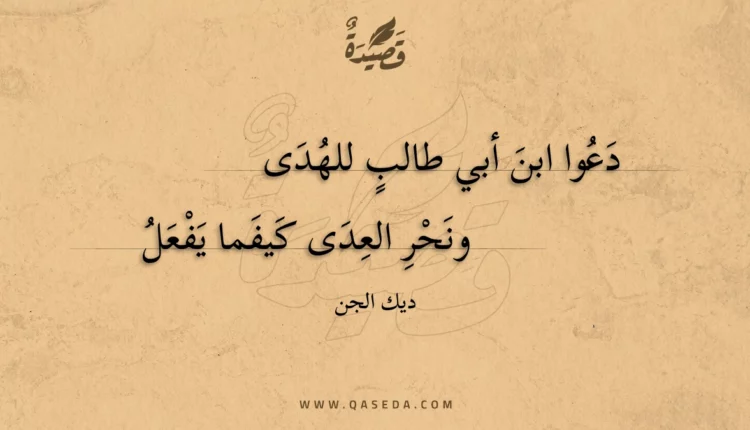 قَصِيدَةٌ
دَعُوا ابنَ أبي طالبٍ للهُدَى
ونَحْرِ العِدَى كَيفَما يَفْعَلُ
ديك الجن
WWW.QASEDA.COM